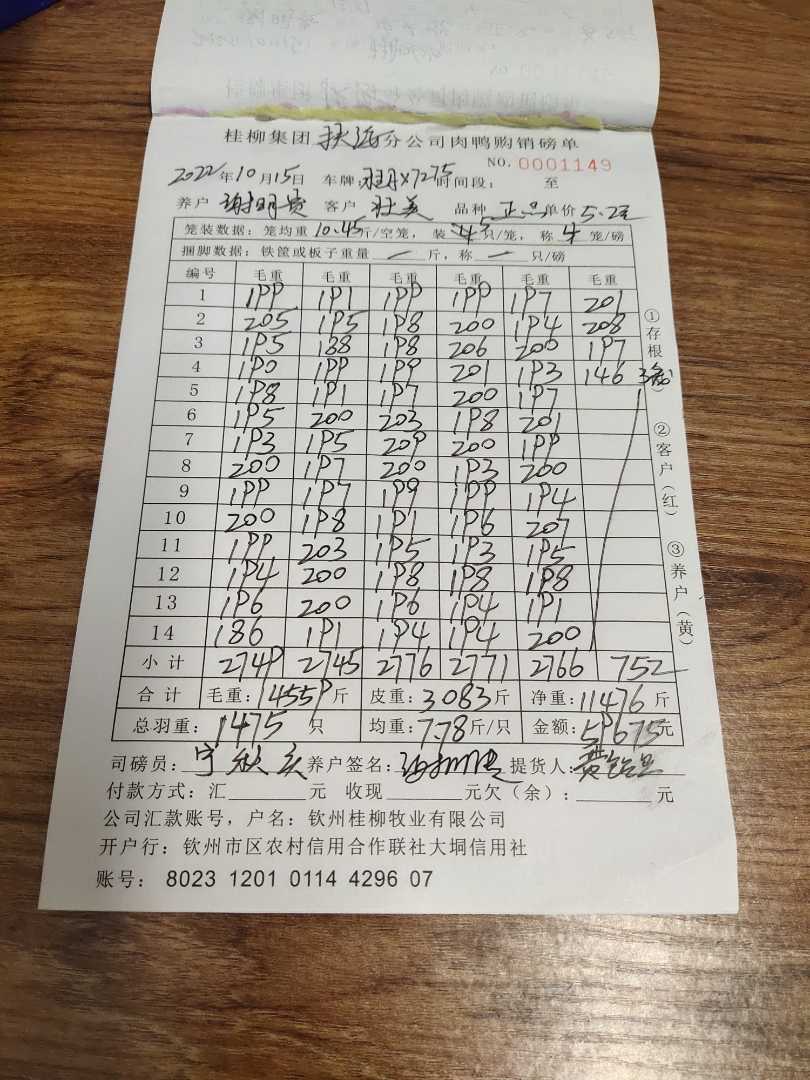 桂柳集团 扶绥 分公司肉鸭购销磅单
NO. 0001149
2022年10月15日 车牌: X7275 时间段: 至
养户 谢明贵 客户 壮美 品种 正品 单价 5.2元
笼装数据: 笼均重 10.45斤/空笼, 装 5只/笼, 称 4 笼/磅
捆脚数据: 铁筐或板子重量 — 斤, 称 — 只/磅
编号 毛重 毛重 毛重 毛重 毛重 毛重
1 199 191 199 199 197 201
2 205 195 198 200 194 208
3 195 188 198 206 200 197
4 190 199 199 201 193 146 3笼
5 198 191 197 200 197
6 195 200 203 198 201
7 193 195 209 200 199
8 200 197 200 193 200
9 199 197 199 199 194
10 200 198 191 196 207
11 199 203 195 193 195
12 194 200 198 198 198
13 196 200 196 194 191
14 186 191 194 194 200
小计 2749 2745 2776 2771 2766 752
合计 毛重: 14559斤 皮重: 3083斤 净重: 11476斤
总羽重: 1475 只 均重: 7.78斤/只 金额: 59675元
司磅员: 养户签名: 提货人:
付款方式: 汇 元 收现 元欠(余): 元
公司汇款账号, 户名: 钦州桂柳牧业有限公司
开户行: 钦州市区农村信用合作联社大垌信用社
账号: 8023 1201 0114 4296 07
①存根
②客户(红)
③养户(黄)